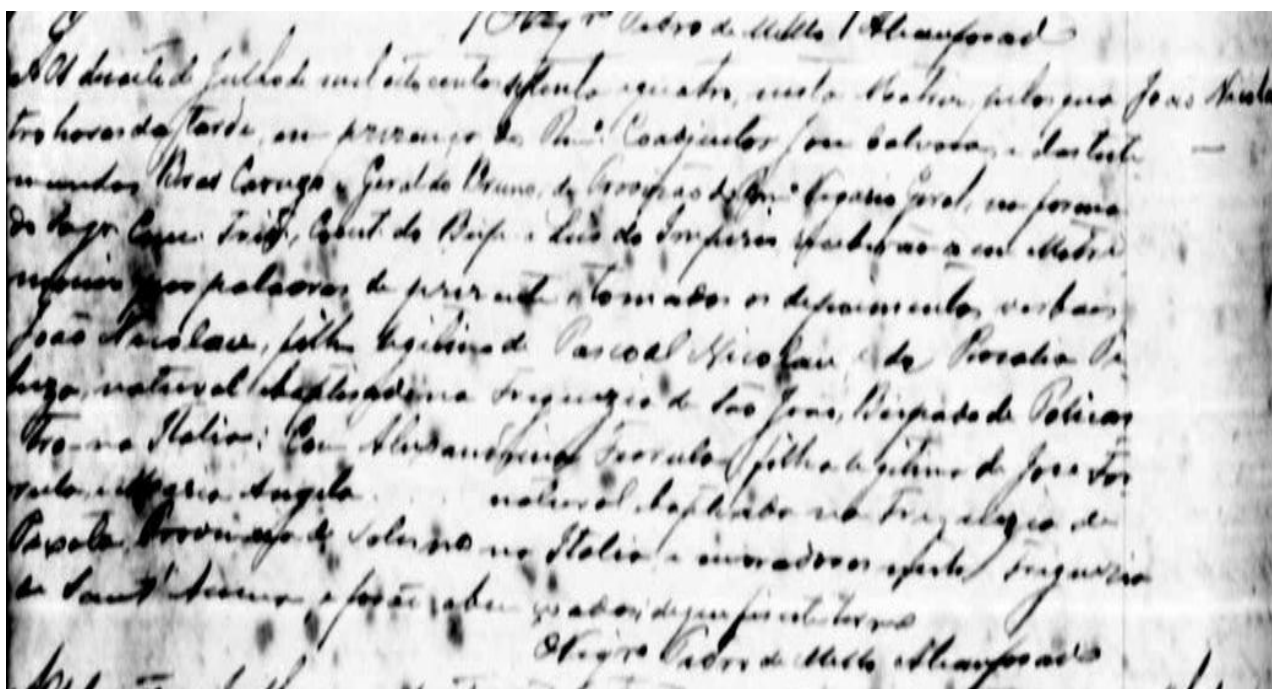 O Vigr.º Pedro de Mello Alcanforado
Aos de Julho de mil oito centos setenta e quatro, nesta Matriz, pelas qua João Nicola
tro horas da tarde, em prezença do Rm.º Coadjuctor José e das teste
munhas Bras e Geraldo Bruno, de Provizão do Vigario Geral, na forma
do Sagr. Conc. Trid., Const. do Bisp. e Leis do Imperio receberão-se em Matri
monio por palavras de prezente e tomados os depoimentos verbaes
João Nicolau, filho legitimo de Pascoal Nicolau e de Rosalia
natural e baptisado na Freguezia de São João, Bispado de Policas
tro na Italia: Com Filha legitima de José
e Maria Angela natural e baptisada na Freguezia de
Provincia de Salerno na Italia e moradores nesta Freguezia
de Sant'Anna, e forão abençoados, de que fiz este termo
O Vigr.º Pedro de Mello Alcanforado